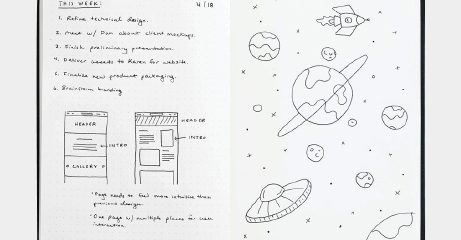 THIS WEEK: 4/18
1. Refine technical design.
2. Meet w/ Dan about client mockups.
3. Finish preliminary presentation.
4. Deliver assets to Karen for website.
5. Finalize new product packaging.
6. Brainstorm branding
HEADER
HEADER
INTRO
INTRO
GALLERY
*Page needs to feel more intuitive than
previous design.
*One page w/ multiple places for user
interaction.